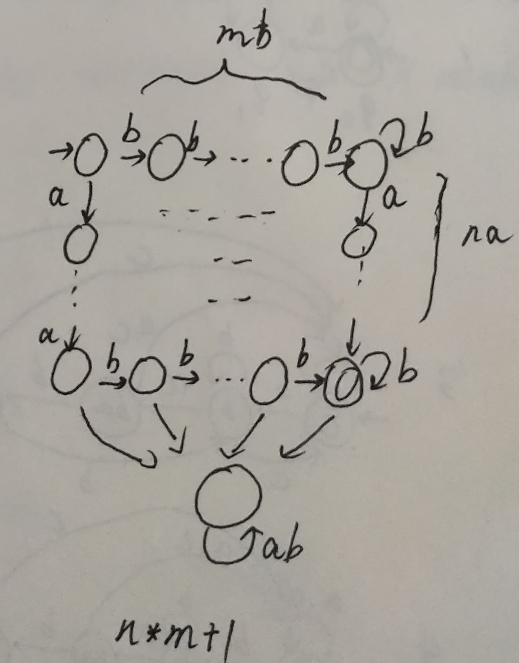 mb
b b ... b b
a a
na
a
b b ... b b
ab
n*m+1